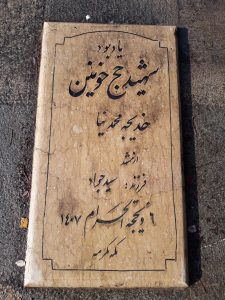 یادبود
شهید حج خونین
خدیجه محمد نیا
ارشد
فرزند: سید جواد
۶ ذیحجة الحرام ۱۴۰۷
مکه مکرمه